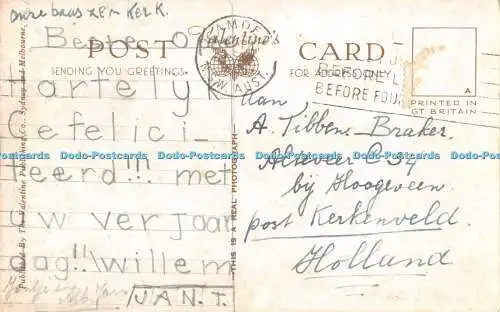 onze baas zem KerK.
Beste O
POST
Valentine's
CARD
SENDING YOU GREETINGS.
FOR ADDRESS ONLY
BEFORE FOUR
PRINTED IN
GT BRITAIN
A
HartelyK
Gefelici-
teerd!!! met
Uw verjaar
dag!! Willem
JAN.T.
Published By The Valentine Publishing Co. Sydney and Melbourne.
THIS IS A REAL PHOTOGRAPH
Aan
A. Tibben-Braker.
Alteveer C 84
bij Hoogeveen.
post Kerkenveld.
Holland
Dodo-Postcards Dodo-Postcards Dodo-Postcards Dodo-Postcards Dodo-Postcards
Dodo-Postcards Dodo-Postcards Dodo-Postcards Dodo-Postcards